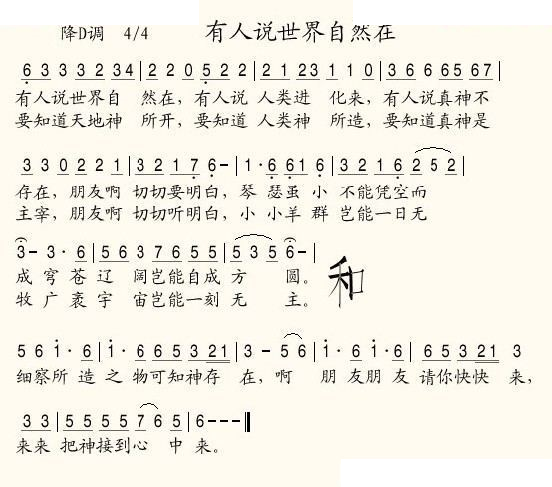 降D调 4/4 有人说世界自然在
6 3 3 3 3 2 34 | 2 2 0 5 2 2 | 2 1 23 1 1 0 | 3 6 6 6 65 67 |
有人说世界自 然在，有人说 人类进 化来，有人说真神不
要知道天地神 所开，要知道 人类神 所造，要知道真神是
3 3 0 2 2 1 | 3 2 1 7 6 – | 1 · 6 61 6 | 3 2 1 6 2 5 2 |
存在，朋友啊 切切要明白，琴 瑟虽 小 不能凭空而
主宰，朋友啊 切切听明白，小 小羊 群 岂能一日无
3 – 3 · 6 | 5 6 3 7 6 5 5 | 5 3 5 6 – |
成 穹 苍 辽 阔岂能自成 方 圆。
牧 广 袤 宇 宙岂能一刻 无 主。
和
5 6 1 · 6 | 1 · 6 6 5 3 21 | 3 – 5 6 | 1 · 6 1 · 6 | 6 5 3 21 3
细察所 造 之 物可知神存 在，啊 朋 友朋 友 请你快快 来，
3 3 | 5 5 5 5 7 6 5 | 6 – – – ‖
来来 把神接到心 中 来。